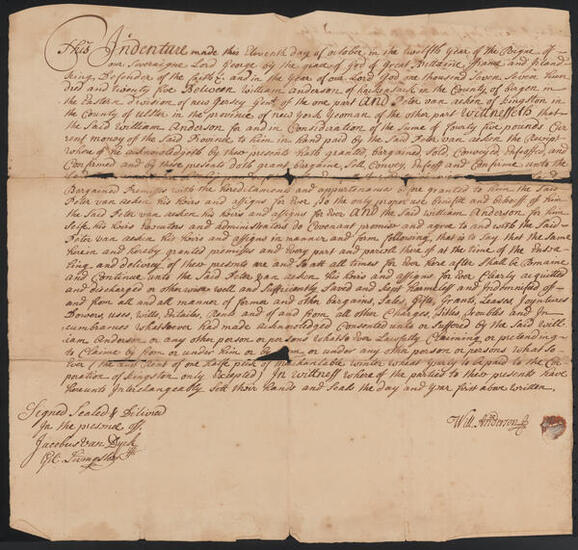 This Indenture made this Eleventh day of October, in the twelfth Year of the Reigne of
our Soveraigne Lord George by the grace of God of Great Brittaine, ffrance and Ireland
King, Defender of the Faith &c and in the Year of our Lord God one thousand Seven Hun
dred and twenty five Between William Anderson of hackensack in the County of bergen in
the Eastern division of new Jersey Gent of the one part And Peter van aeken of Kingston in
the County of Ulster in the province of new York Yeoman of the other part Witnesseth that
the Said william Anderson for and in Consideration of the Sume of fourty five pounds Cur
rent money of the Said Province to him in hand paid by the Said Peter van aeken, the Receipt
where of he acknowledgeth by these presents hath granted bargained Sold Convey'd Infeoffed and
Confirmed and by these presents doth grant bargaine, Sell, Convey, Infeoff and Confirme unto the
Bargained Premisses with the Hereditaments and appurtenances before granted to him the Said
Peter van aeken his heirs and assigns for Ever To the only proper use benefit and behooff of him
the Said Peter van aeken his heirs and assigns for Ever And the Said william Anderson for him
Selfe his heirs Executors and administrators do Covenant promise and agree to and with the Said
Peter van aeken his heirs and assigns in manner and form following, that is to Say that the Same
herein and hereby granted premisses and Every part and parcel there of at the time of the Ensea
ling and delivery of these presents are and So at all times for Ever here after Shall be Remaine
and Continue unto the Said Peter van aeken his heirs and assigns for Ever Clearly acquitted
and discharged or other wise well and Sufficiently Saved and kept harmless and Indemnified of
and from all and all manner of former and other bargains, Sales, Gifts, Grants, Leases, Joyntures
Dowers, uses, wills Entailes, Rents and of and from all other Charges, titles, troubles and In
cumbrances whatsoever had made acknowledged Consented unto or Suffered by the Said Wil
liam Anderson or any other person or persons whatsoever Lawfully Claiming, or pretending
to Claime by from or under him or or under any other person or persons whatso
Ever (the quit Rent of one half peck of merchantable winter wheat Yearly to be paid to the Cor
poration of Kingston only Excepted) In witness where of the parties to these presents have
hereunto Interchangeably Sett their hands and Seals the day and Year first above written
Signed Sealed & Delivered
In the presence off
Jacobus Van Dyck
Livingston
Will Anderson